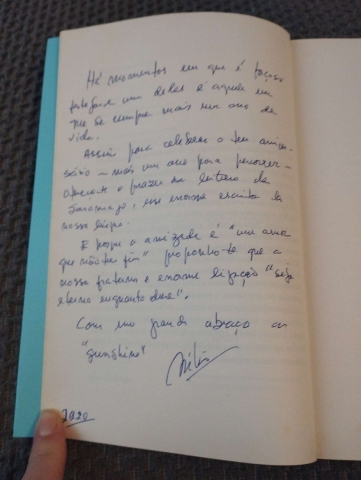 Há momentos em que é forçoso
um deles é aquele em
que se cumpre mais um ano de
vida.
Assim para celebrar o teu aniver-
sário – mais um ano para
o prazer na leitura de
Saramago, esse enorme escritor da
nossa língua.
E porque a amizade é "um amor
que não tem fim" proponho-te que a
nossa fraterna e enorme ligação "seja
eterna enquanto dure".
Com um grande abraço
"sunshine"
2020